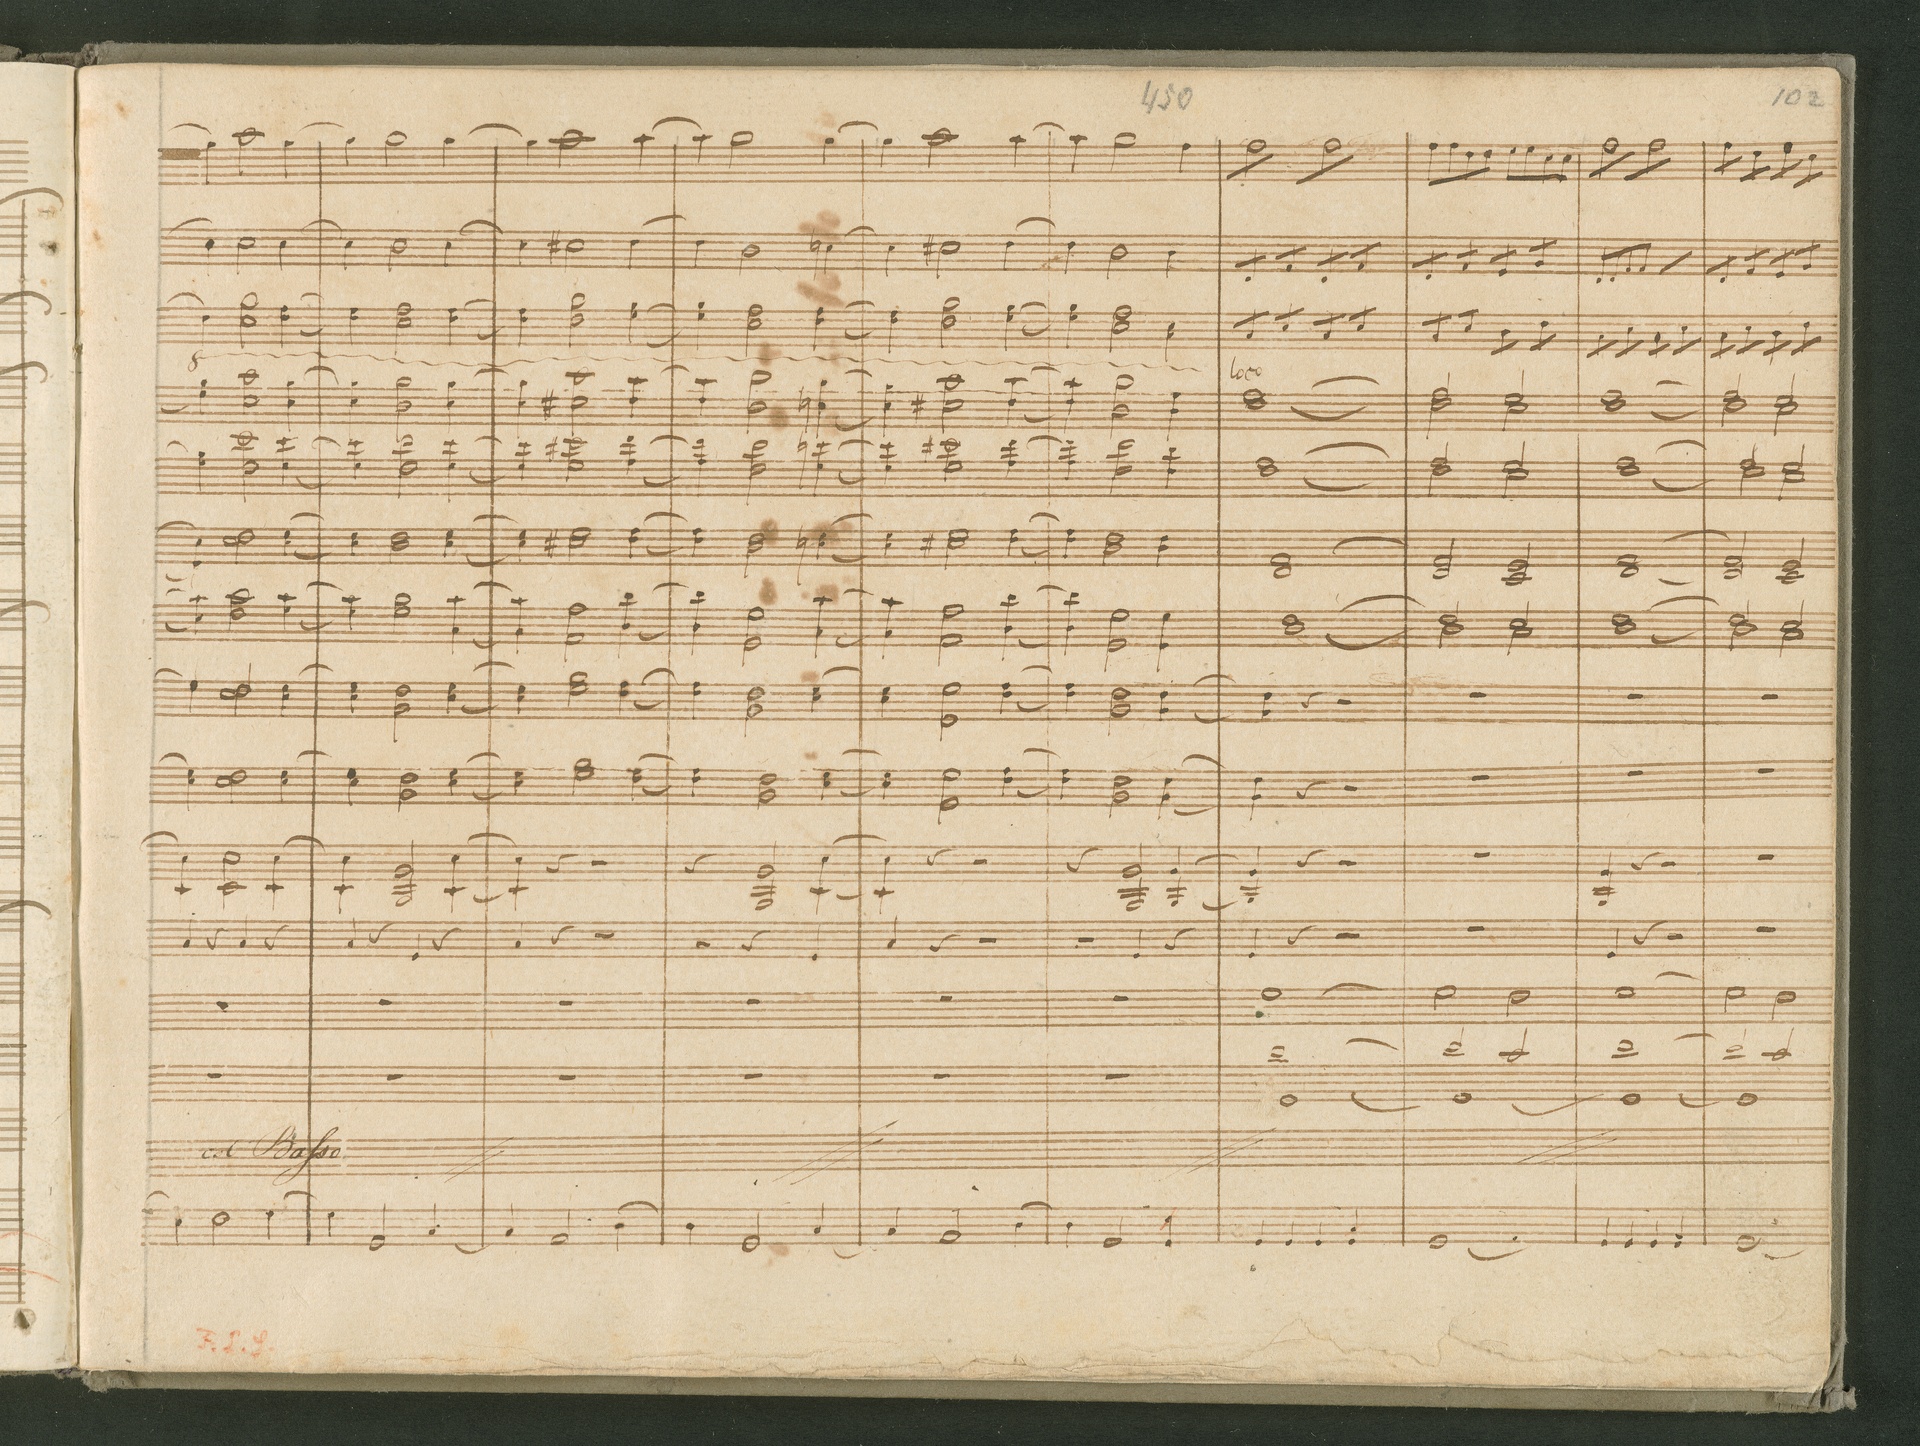 450
102
8
loco
col Basso